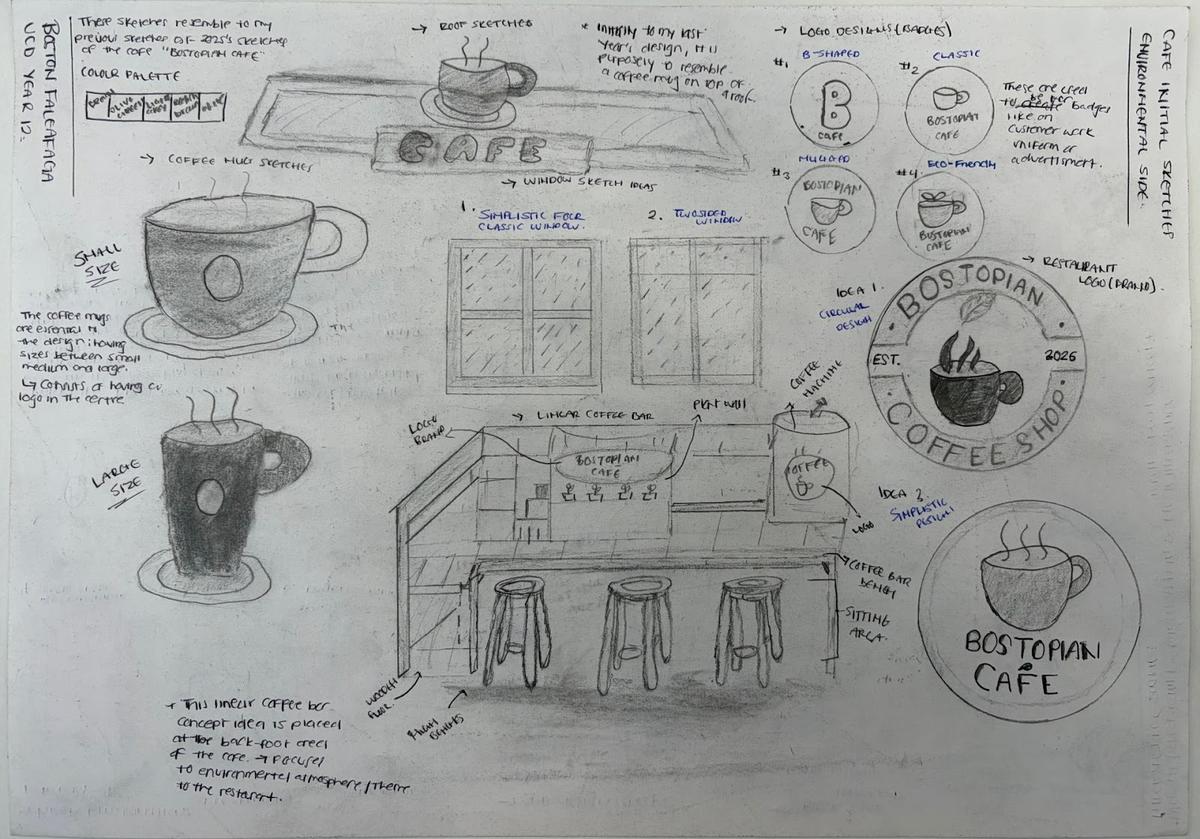 BOSTON FALEAFAGA
VCD YEAR 12.
These sketches resemble to my
previous sketches of 2025's sketches
of the cafe "BOSTOPIAN CAFE"
COLOUR PALETTE
BROWN
OLIVE
GREEN
LIGHT
GREY
→ COFFEE MUG SKETCHES
SMALL
SIZE
The coffee mugs
are essential to
the design; having
sizes between small
medium and large.
↳ Consists of having a
logo in the centre
LARGE
SIZE
→ ROOF SKETCHES
CAFE
* initially to my last
year's design, it is
purposely to resemble
a coffee mug on top of
a roof.
→ WINDOW SKETCH IDEAS
1. SIMPLISTIC FOUR
CLASSIC WINDOW.
2. TWO SIDED
WINDOW
→ LOGO DESIGNS (BADGES)
#1 B-SHAPED
B
CAFE
#2 CLASSIC
BOSTOPIAN
CAFE
#3
BOSTOPIAN
CAFE
#4. Eco-Friendly
BOSTOPIAN
CAFE
These are
to be
badges
like on
customer work
uniform or
advertisment.
CAFE INITIAL SKETCHES
ENVIRONMENTAL SIDE.
→ RESTAURANT
LOGO (BRAND).
IDEA 1.
CIRCULAR
DESIGN
BOSTOPIAN
EST. 2026
COFFEE SHOP
IDEA 2
SIMPLISTIC
DESIGN
BOSTOPIAN
CAFE
→ LINEAR COFFEE BAR
LOGO
BRAND
PRINT WALL
COFFEE
MACHINE
BOSTOPIAN
CAFE
COFFEE
LOGO
COFFEE BAR
BENCH
SITTING
AREA.
WOODEN
FLOOR
HIGH
BENCHES
→ This linear coffee bar
concept idea is placed
at the back-foot area
of the cafe. →
to environmental atmosphere/theme
to the restarant.